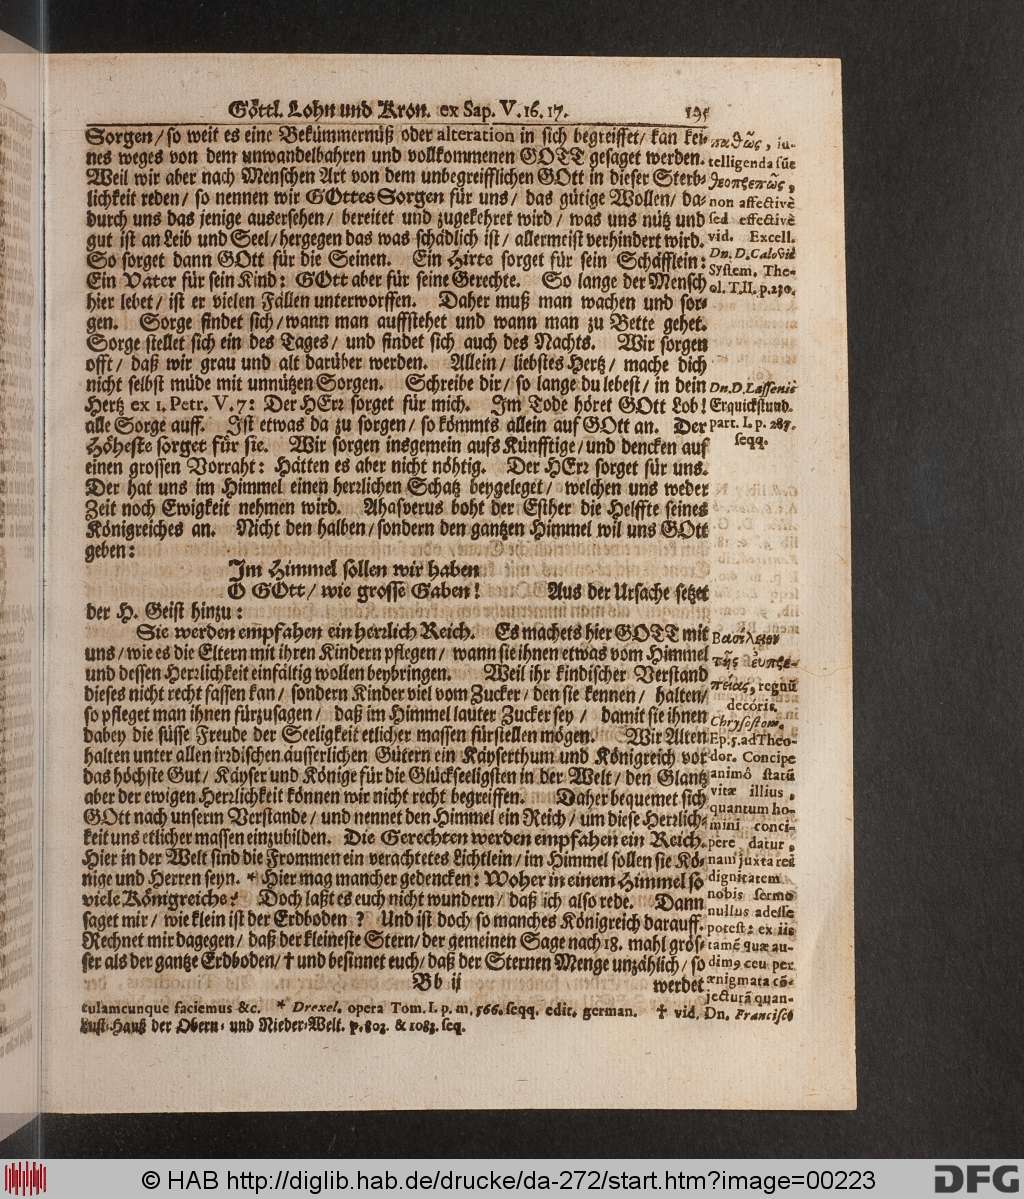 Göttl. Lohn und Kron. ex Sap. V. 16. 17. 195
Sorgen / so weit es eine Bekümmernüß oder alteration in sich begreiffet / kan kei-
nes weges von dem unwandelbahren und vollkommenen GOTT gesaget werden.
Weil wir aber nach Menschen Art von dem unbegreifflichen GOtt in dieser Sterb-
lichkeit reden / so nennen wir GOttes Sorgen für uns / das gütige Wollen / da-
durch uns das jenige ausersehen / bereitet und zugekehret wird / was uns nütz und
gut ist an Leib und Seel / hergegen das was schädlich ist / allermeist verhindert wird.
So sorget dann GOtt für die Seinen. Ein Hirte sorget für sein Schäfflein:
Ein Vater für sein Kind: GOtt aber für seine Gerechte. So lange der Mensch
hier lebet / ist er vielen Fällen unterworffen. Daher muß man wachen und sor-
gen. Sorge findet sich / wann man auffstehet und wann man zu Bette gehet.
Sorge stellet sich ein des Tages / und findet sich auch des Nachts. Wir sorgen
offt / daß wir grau und alt darüber werden. Allein / liebstes Hertz / mache dich
nicht selbst müde mit unnützen Sorgen. Schreibe dir / so lange du lebest / in dein
Hertz ex 1. Petr. V. 7: Der HErr sorget für mich. Im Tode höret GOtt Lob!
alle Sorge auff. Ist etwas da zu sorgen / so kömmts allein auf GOtt an. Der
Höheste sorget für sie. Wir sorgen insgemein aufs Künfftige / und dencken auf
einen grossen Vorraht: Hätten es aber nicht nöhtig. Der HErr sorget für uns.
Der hat uns im Himmel einen herrlichen Schatz beygeleget / welchen uns weder
Zeit noch Ewigkeit nehmen wird. Ahasverus boht der Esther die Helffte seines
Königreiches an. Nicht den halben / sondern den gantzen Himmel wil uns GOtt
geben:
Im Himmel sollen wir haben
O GOtt / wie grosse Gaben! Aus der Ursache setzet
der H. Geist hinzu:
Sie werden empfahen ein herrlich Reich. Es machets hier GOTT mit
uns / wie es die Eltern mit ihren Kindern pflegen / wann sie ihnen etwas vom Himmel
und dessen Herrlichkeit einfältig wollen beybringen. Weil ihr kindischer Verstand
dieses nicht recht fassen kan / sondern Kinder viel vom Zucker / den sie kennen / halten /
so pfleget man ihnen fürzusagen / daß im Himmel lauter Zucker sey / damit sie ihnen
dabey die süsse Freude der Seeligkeit etlicher massen fürstellen mögen. Wir Alten
halten unter allen irrdischen äusserlichen Gütern ein Käyserthum und Königreich vor
das höchste Gut / Käyser und Könige für die Glückseeligsten in der Welt / den Glantz
aber der ewigen Herrlichkeit können wir nicht recht begreiffen. Daher bequemet sich
GOtt nach unserm Verstande / und nennet den Himmel ein Reich / um diese Herrlich-
keit uns etlicher massen einzubilden. Die Gerechten werden empfahen ein Reich.
Hier in der Welt sind die Frommen ein verachtetes Lichtlein / im Himmel sollen sie Kö-
nige und Herren seyn. * Hier mag mancher gedencken: Woher in einem Himmel so
viele Königreiche? Doch laßt es euch nicht wundern / daß ich also rede. Dann
saget mir / wie klein ist der Erdboden? Und ist doch so manches Königreich darauff.
Rechnet mir dagegen / daß der kleineste Stern / der gemeinen Sage nach 18. mahl grös-
ser als der gantze Erdboden / † und besinnet euch / daß der Sternen Menge unzählich / so
Bb ij werdet
παθῶς, in-
telligenda süe
θεοπρεπῶς,
non affectivè
sed effectivè
vid. Excell.
Dn. D. Calovii
System. The-
ol. T. II. p. 230.
Dn. D. Lassenii
Erquickstund.
part. I. p. 287.
seqq.
Βασίλειον
τῆς εὐπρε-
πείας, regnũ
decóris.
Chrysostom.
Ep. 5. ad Theo-
dor. Concipe
animô statũ
vitæ illius,
quantum ho-
mini conci-
pere datur,
nam juxta reẽ
dignitatem
nobis sermo
nullus adesse
potest: ex iis
tamẽ quæ au-
dimꝰ ceu per
ænigmata cõ-
jecturã quan-
tulamcunque faciemus &c. * Drexel. opera Tom. I. p. m. 566. seqq. edit. german. † vid. Dn. Francisci
Lust-Hauß der Obern- und Nieder-Welt. p. 802. & 1083. seq.
© HAB http://diglib.hab.de/drucke/da-272/start.htm?image=00223
DFG